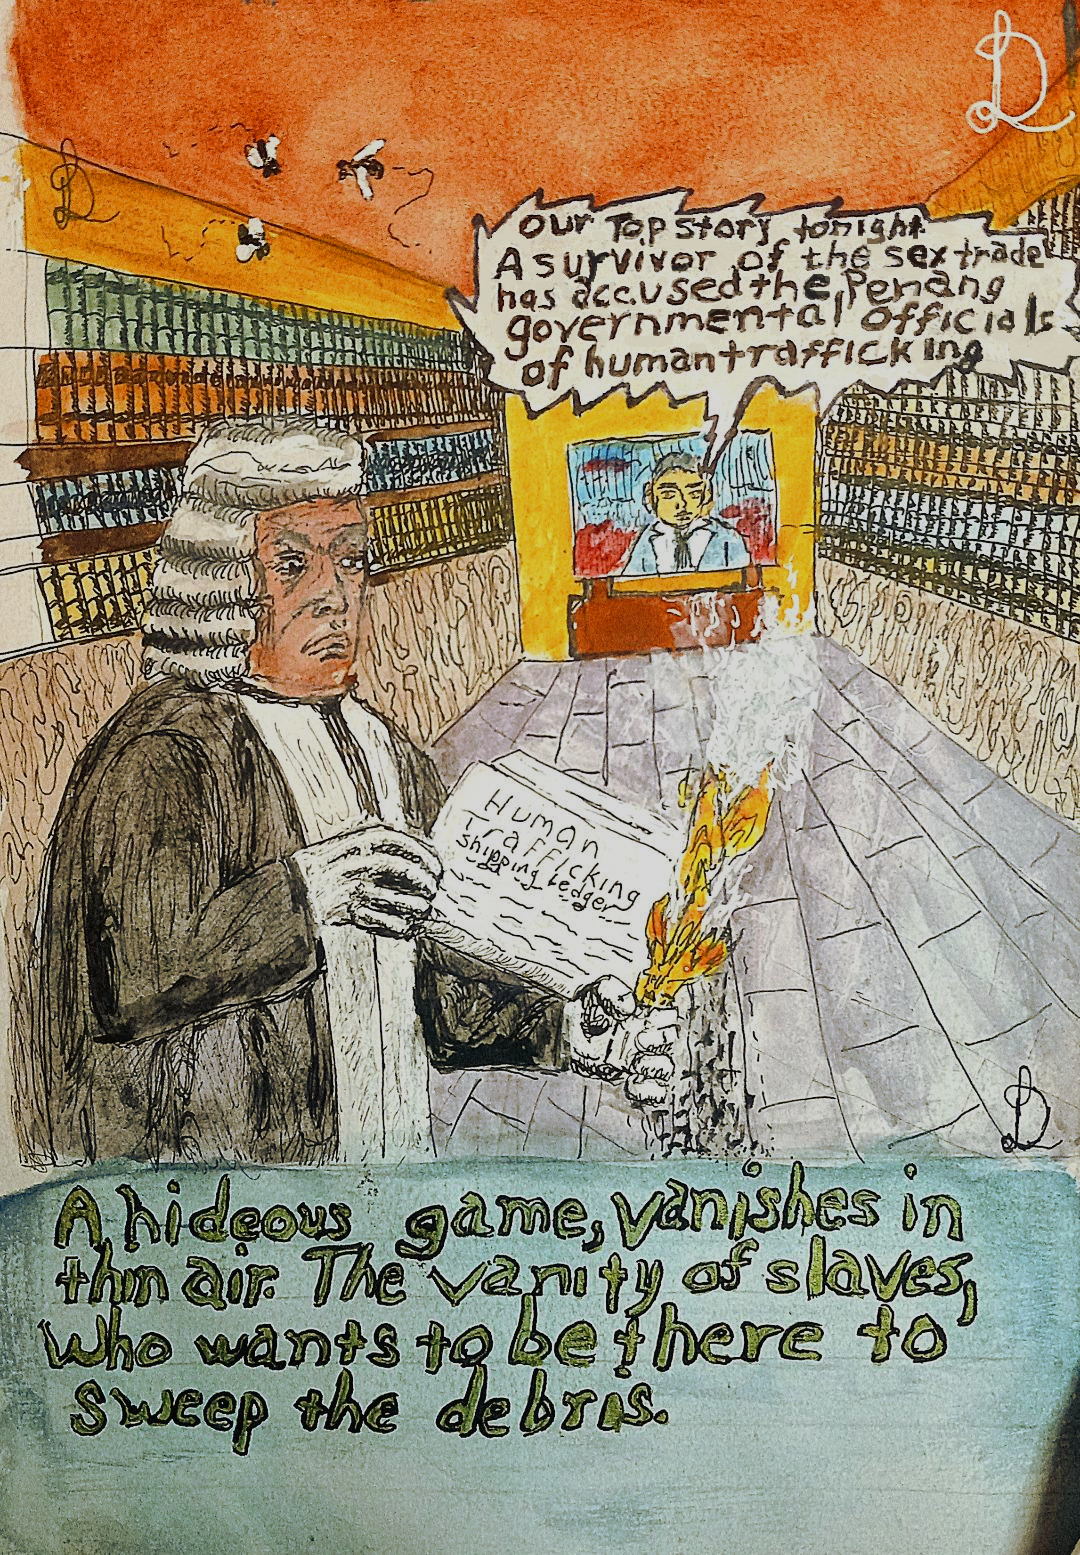 D
D
Our Top story tonight
A survivor of the sex trade
has accused the Penang
governmental officials
of human trafficking
Human
Trafficking
shipping Ledger
D
A hideous game, vanishes in
thin air. The vanity of slaves,
who wants to be there to
sweep the debris.